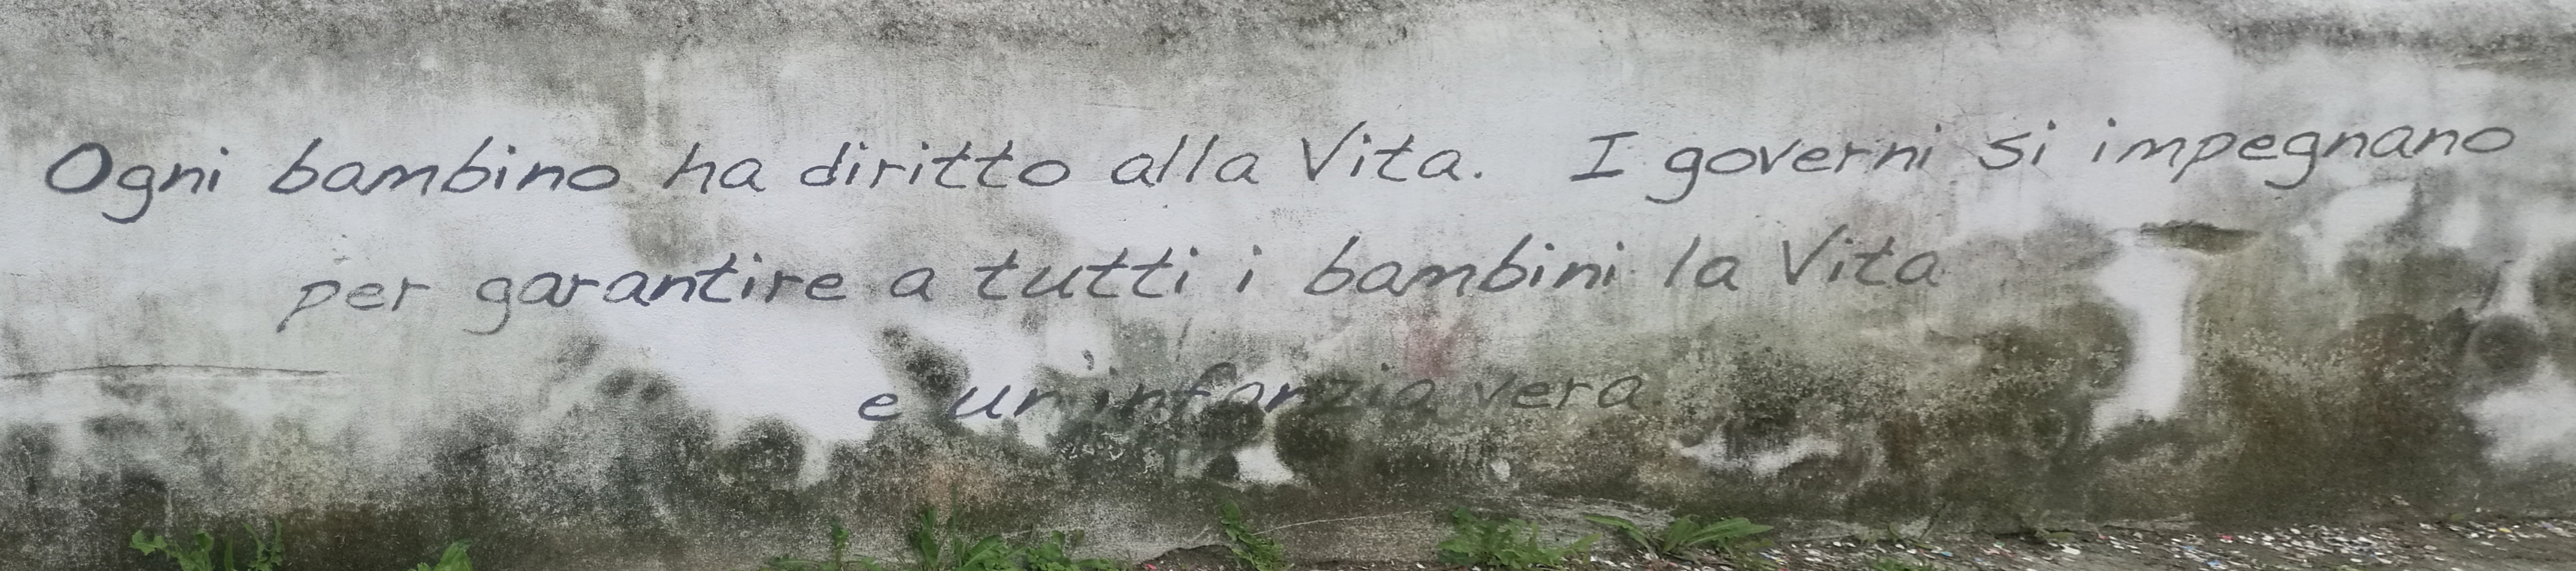 Ogni bambino ha diritto alla Vita. I governi si impegnano
per garantire a tutti i bambini la Vita
e un'infanzia vera